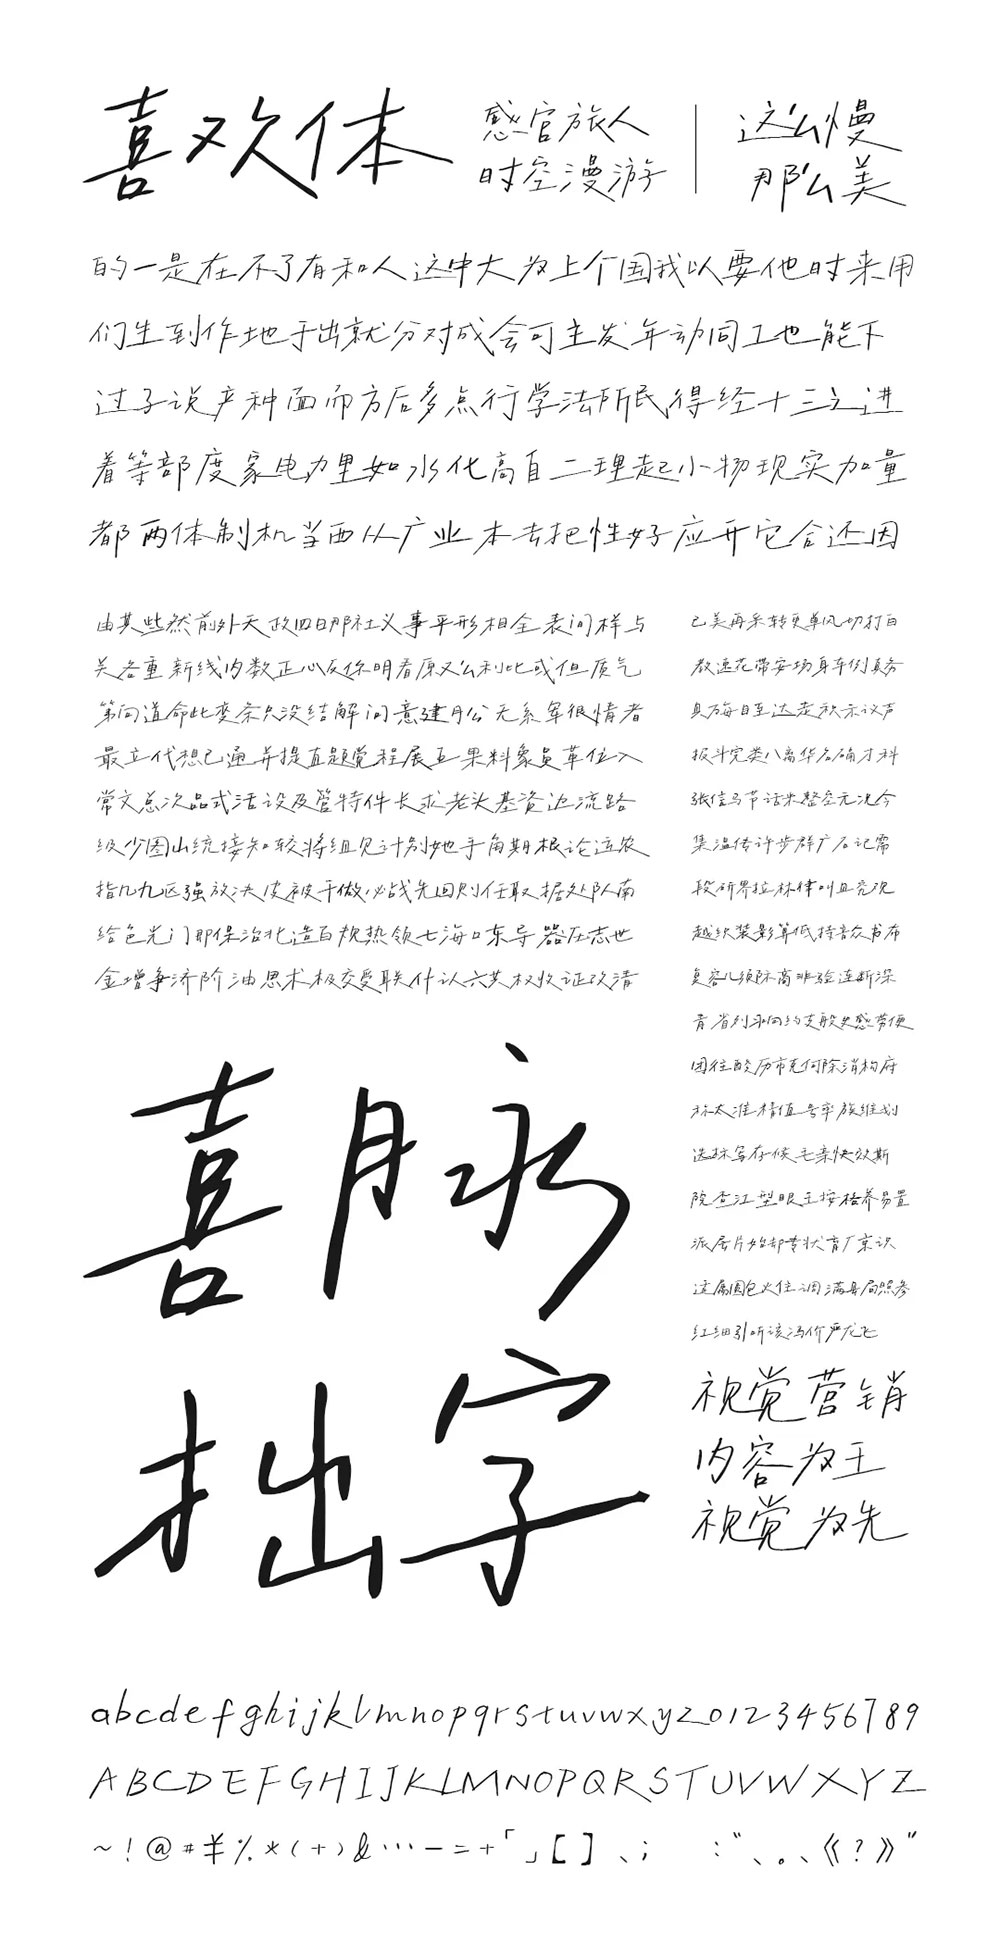 喜欢体
感官旅人
时空漫游
这么慢
那么美
的一是在不了有和人这中大为上个国我以要他时来用
们生到作地于出就分对成会可主发年动同工也能下
过子说产种面而方后多点行学法所民得经十三之进
着等部度家电力里如水化高自二理起小物现实加量
都两体制机当西从广业本去把性好应开它合还因
由其些然前外天政四日那社义事平形相全表间样与
关各重新线内数正心反你明看原又么利比或但质气
第向道命此变条只没结解问意建月公无系军很情者
最立代想已通并提直题党程展五果料象员革位入
常文总次品式活设及管特件长求老头基资边流路
级少图山统接知较将组见计别她手角期根论运农
指几九区强放决皮被干做必战先回则任取据处队南
给色光门即保治北造百规热领七海口东导器压志世
金增争济阶油思术极交受联什认六共权收证改清
己美再采转更单风切打白
教速花带安场身车例真务
具万每目至达走积示议声
报斗完类八离华名确才科
张信马节话米整空元况今
集温传许步群广石记需
段研界拉林律叫且究观
越织装影算低持音众书布
复容儿须际商非验连断深
青省列永向约支般史感劳便
团往酸历市克何除消构府
称太准精值号率族维划
选标写存候毛亲快效斯
院查江型眼王按格养易置
派层片始却专状育厂京识
适属圆包火住调满县局照参
红细引听该冯价严龙飞
喜月永
拙字
视觉营销
内容为王
视觉为先
abcdefghijklmnopqrstuvwxyz0123456789
ABCDEFGHIJKLMNOPQRSTUVWXYZ
~!@#¥%*(+)&…-=+「」[]、;:“、。、《?》”